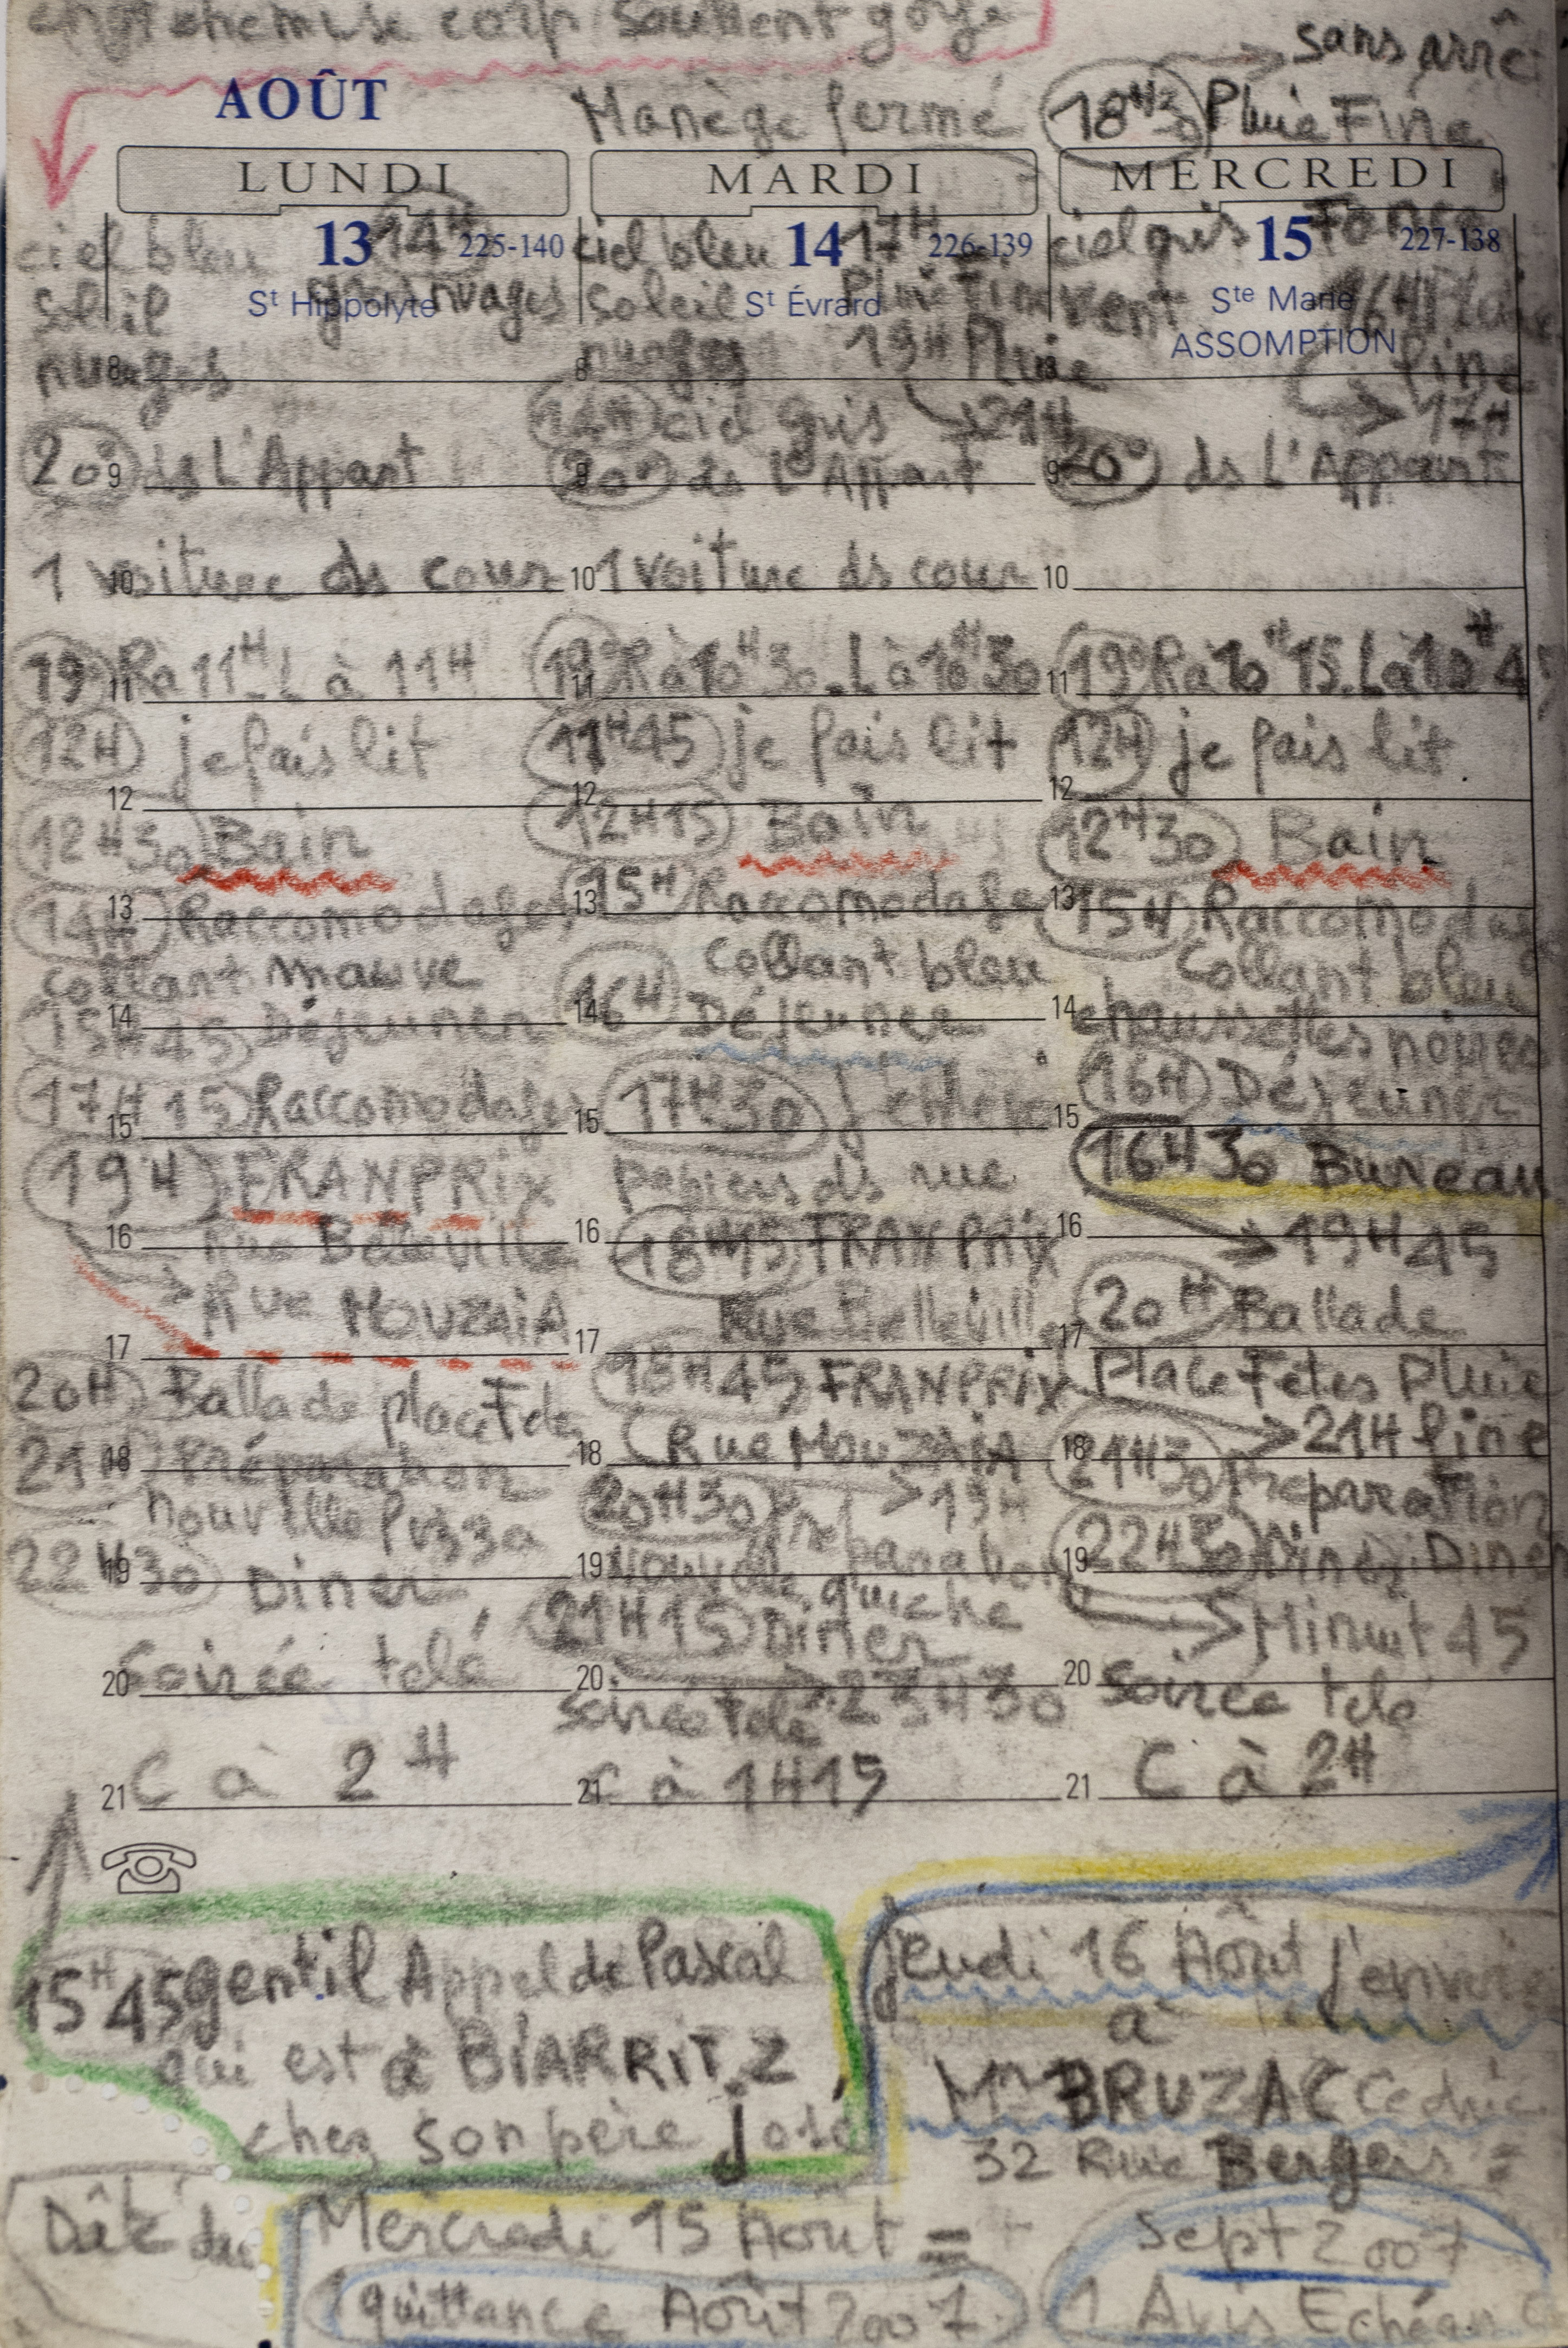 chemise corp soutient gorge
sans arrêt
AOÛT
Manège fermé
18H30 Pluie Fine
LUNDI
13 14H 225-140
St Hippolyte
ciel bleu
gros nuages
soleil
nuages
8
20° ds L'Appart
9
1 voiture ds cour
10
19° R à 11H. L à 11H
11
12H je fais lit
12
12H30 Bain
13
14H Raccomodages
collant mauve
14
15H45 Déjeuner
17H15 Raccomodages
15
19H FRANPRIX
16
rue Belleville
Rue MOUZAIA
17
20H Ballade place F de
21H Préparation
18
nouville Pizza
22H30 Diner
19
Soirée télé
20
C à 2H
21
MARDI
ciel bleu 14 17H 226-139
soleil St Évrard Pluie Fine
nuages 19H Pluie
8
14H ciel gris 21H
20° ds L'Appart
9
1 voiture ds cour
10
19° R à 10H30. L à 10H30
11
11H45 je fais lit
12
12H15 Bain
13
15H Raccomodage
collant bleu
16H Déjeuner
14
17H30
15
papiers ds rue
16
18H15 FRANPRIX
Rue Belleville
17
18H45 FRANPRIX
Rue MOUZAIA
18
19H
20H30 Preparation
19
nouvelle quiche
21H15 Diner
20
23H30
soirée télé
C à 1H15
21
MERCREDI
ciel gris 15 Foncé 227-138
vent Ste Marie 16H Pluie
ASSOMPTION
fine
17H
20° ds L'Appart
9
10
19° R à 10H15. L à 10H45
11
12H je fais lit
12
12H30 Bain
13
15H Raccomodage
Collant bleu
14
chaussettes noires
16H Déjeuner
15
16H30 Bureau
16
19H45
20H Ballade
17
Place Fêtes Pluie
21H fine
18
21H30 Preparation
22H30 Diner
19
Minuit 45
20
Soirée télé
C à 2H
21
15H45 gentil Appel de Pascal
qui est à BIARRITZ
chez son père José
jeudi 16 Août j'envoie
à
Mr BRUZAC Cédric
32 Rue Bergers =
Dâté du Mercredi 15 Août =
Sept 2007
1 quittance Août 2007
1 Avis Echéance